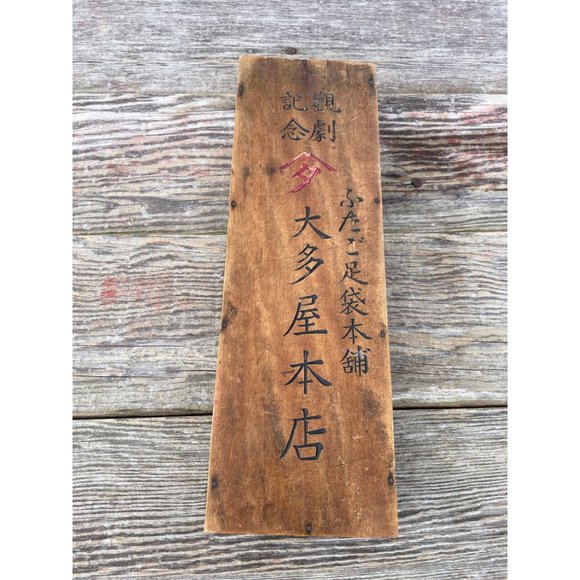 觀劇
記念
多
ふたご足袋本舗
大多屋本店